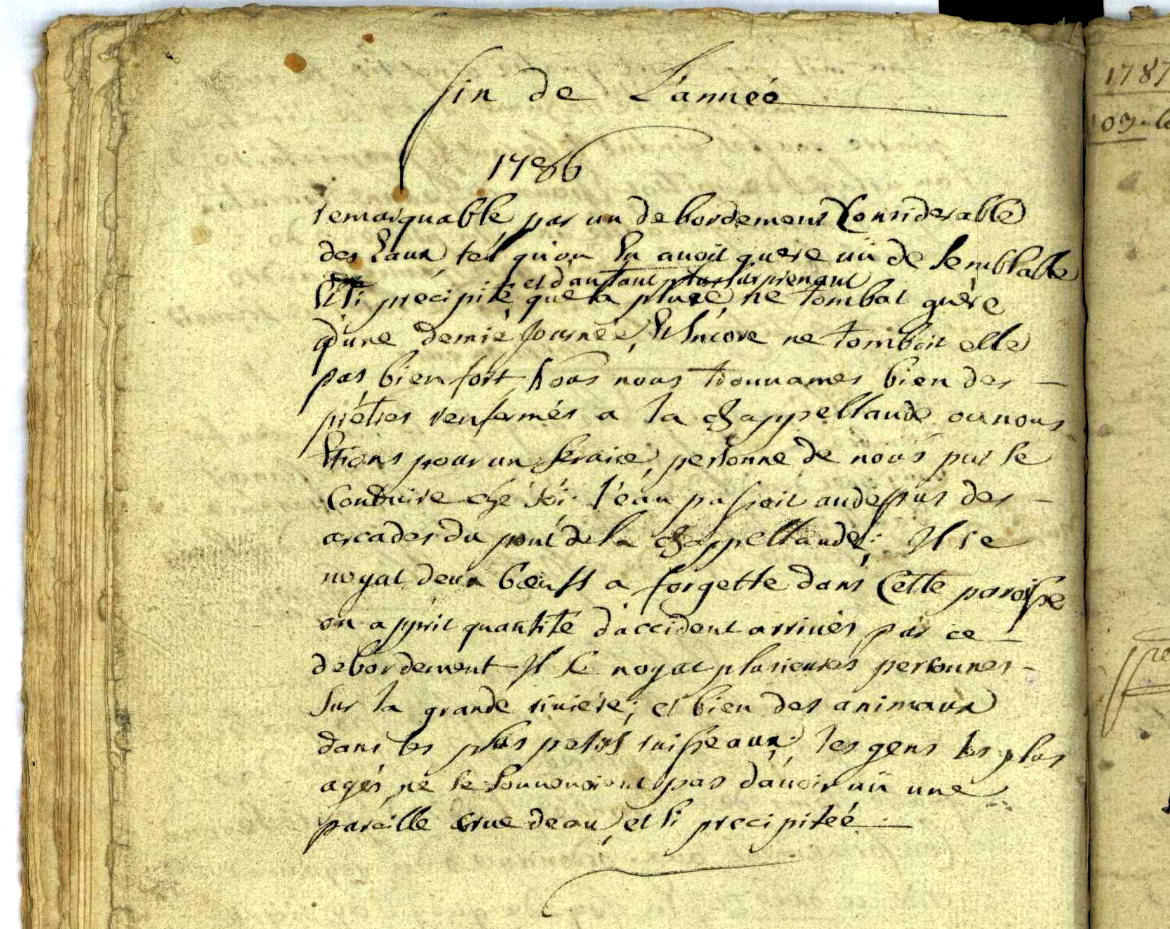 fin de L'année
1786
remarquable par un debordement Considerable
des Eaux tél qu'on En avoit guere vû de Semblable
et d'autant plus surprenant
Et Si précipité que la pluïe ne tombat guère
q'une demie Journée, Et Encore ne tomboit elle
pas bien fort, Nous nous trouvames bien des
prêtres renfermés a la chappellaude ou nous
Etions pour un Service, personne de nous put se
Conduire ché Soi. l'eau passoit audessus des
arcades du pont de la chappellaude; Il se
noyat deux bœufs a forgette dans Cette paroisse
on apprit quantité d'accident arrivés par ce
debordement Il se noyat plusieures personnes
Sur la grande riviére; et bien des animaux
dans les plus petits ruisseaux; les gens les plus
agés ne se Souvenoient pas d'avoir vû une
pareille crue deau, et Si precipiteé
1787
103